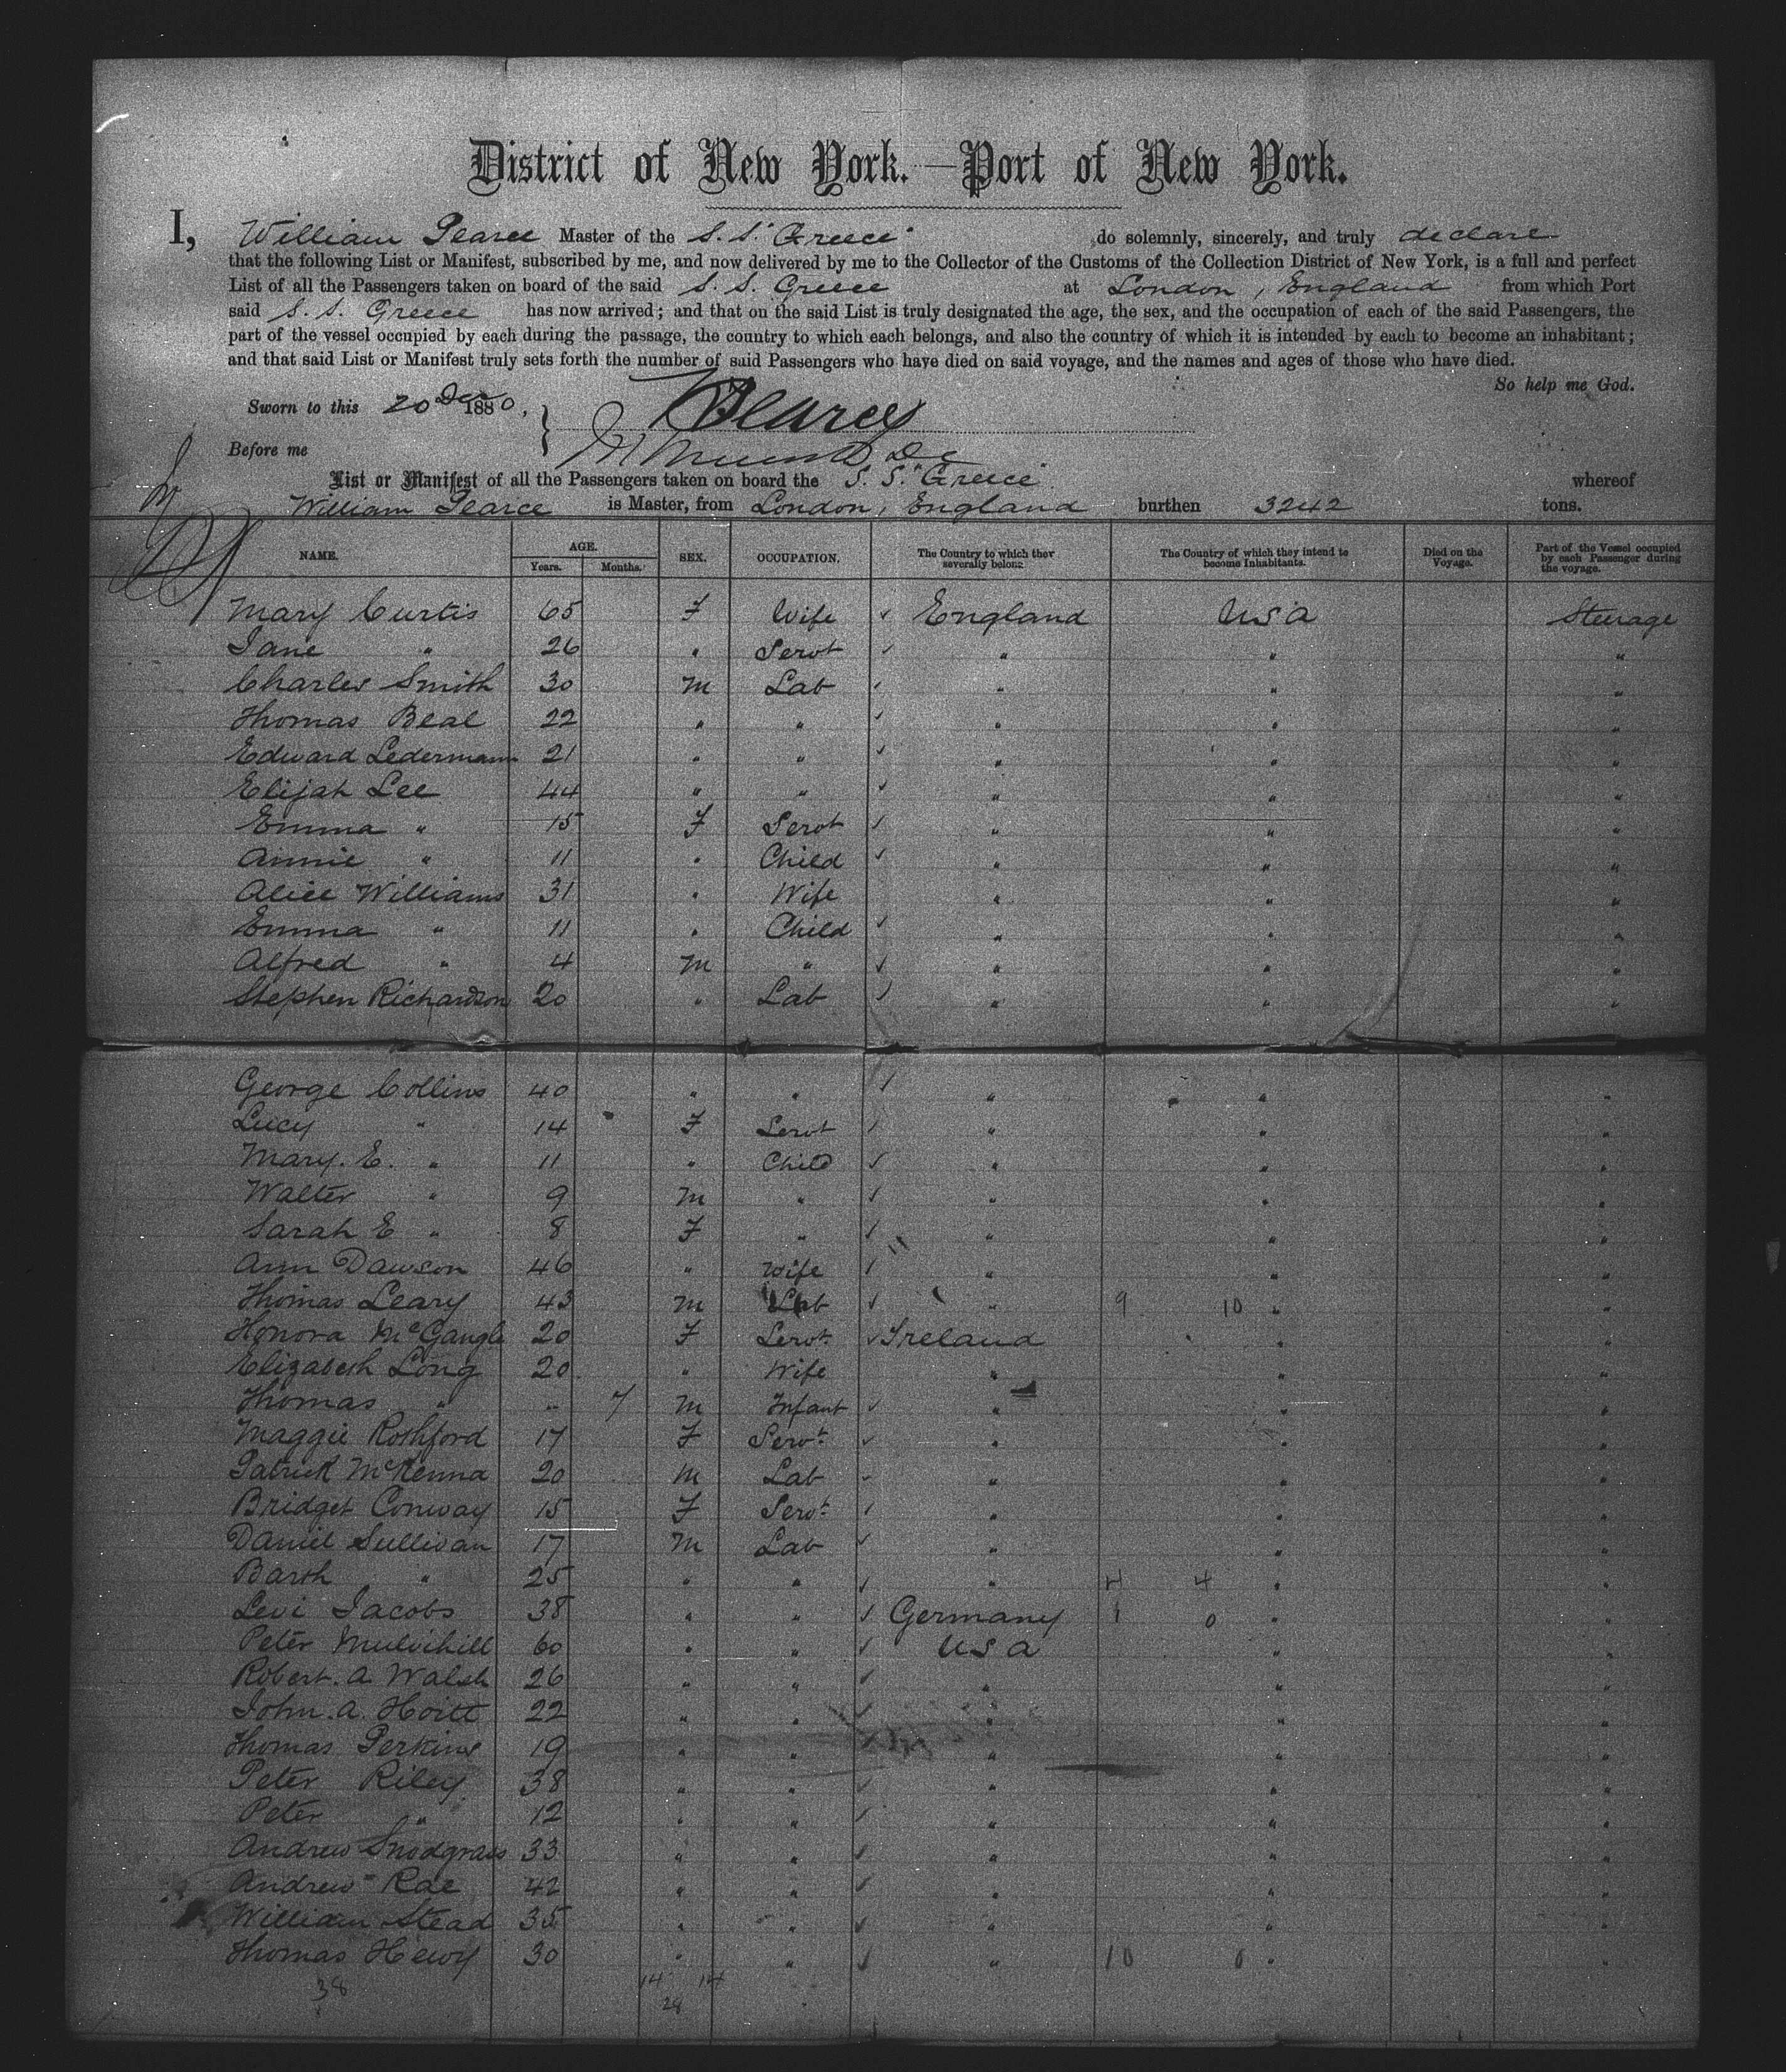 District of New York.—Port of New York.
I, William Pearce Master of the S.S. "Greece" do solemnly, sincerely, and truly declare
that the following List or Manifest, subscribed by me, and now delivered by me to the Collector of the Customs of the Collection District of New York, is a full and perfect
List of all the Passengers taken on board of the said S. S. Greece at London, England from which Port
said S. S. Greece has now arrived; and that on the said List is truly designated the age, the sex, and the occupation of each of the said Passengers, the
part of the vessel occupied by each during the passage, the country to which each belongs, and also the country of which it is intended by each to become an inhabitant;
and that said List or Manifest truly sets forth the number of said Passengers who have died on said voyage, and the names and ages of those who have died.
So help me God.
Sworn to this 20 Dec 1880,
Before me
List or Manifest of all the Passengers taken on board the S. S. "Greece" whereof
William Pearce is Master, from London, England burthen 3242 tons.
NAME. AGE. Years. Months. SEX. OCCUPATION. The Country to which they severally belong The Country of which they intend to become Inhabitants. Died on the Voyage. Part of the Vessel occupied by each Passenger during the voyage.
Mary Curtis 65 F Wife ✓ England USA Steerage
Jane " 26 " Servt ✓ " " "
Charles Smith 30 M Lab ✓ " " "
Thomas Beal 22 " " ✓ " " "
Edward Ledermann 21 " " ✓ " " "
Elijah Lee 44 " " ✓ " " "
Emma " 15 F Servt ✓ " " "
Annie " 11 " Child ✓ " " "
Alice Williams 31 " Wife " " "
Emma " 11 " Child ✓ " " "
Alfred " 4 M " ✓ " " "
Stephen Richardson 20 " Lab ✓ " " "
George Collins 40 " " ✓ " " "
Lucy " 14 F Servt ✓ " " "
Mary. E. " 11 " Child ✓ " " "
Walter " 9 M " ✓ " " "
Sarah E " 8 F " ✓ " " "
Ann Dawson 46 " Wife ✓ " " "
Thomas Leary 43 M Lab ✓ " 9 10 " "
Honora McGangle 20 F Servt ✓ Ireland " "
Elizabeth Long 20 " Wife " " "
Thomas " " 7 M Infant ✓ " " "
Maggie Roshford 17 F Servt ✓ " " "
Patrick McKenna 20 M Lab ✓ " " "
Bridget Conway 15 F Servt ✓ " " "
Daniel Sullivan 17 M Lab ✓ " " "
Barth " 25 " " ✓ " 4 4 " "
Levi Jacobs 38 " " ✓ Germany 1 0 " "
Peter Mulvihill 60 " " ✓ USA " "
Robert. A. Walsh 26 " " ✓ " " "
John. A. Hoitt 22 " " ✓ " " "
Thomas Perkins 19 " " ✓ " " "
Peter Riley 38 " " ✓ " " "
Peter " 12 " " ✓ " " "
Andrew Snodgrass 33 " " ✓ " " "
Andrew Rae 42 " " ✓ " " "
William Stead 35 " " ✓ " " "
Thomas 30 " " ✓ " 10 0 " "
38 14 14
28